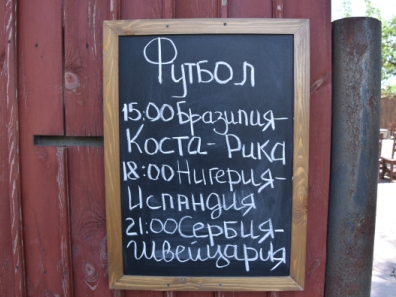 Футбол
15:00 Бразилия-
Коста-Рика
18:00 Нигерия-
Исландия
21:00 Сербия-
Швейцария